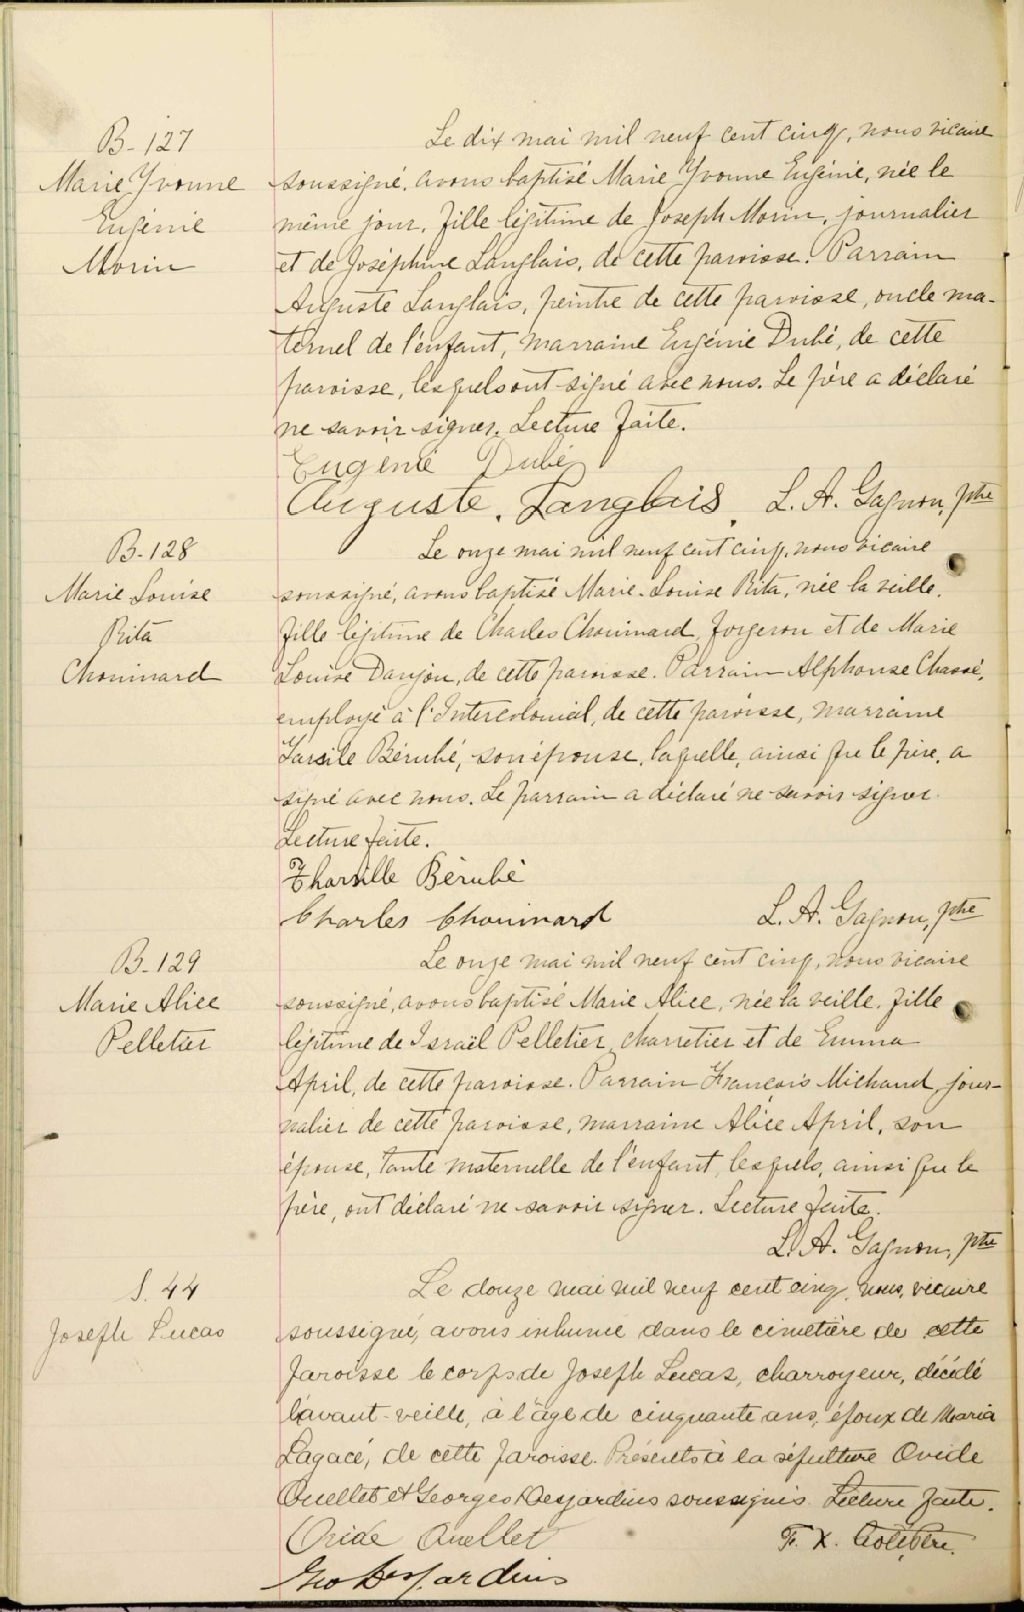 B-127
Marie Yvonne
Eugénie
Morin
Le dix mai mil neuf cent cinq, nous vicaire
soussigné, avons baptisé Marie Yvonne Eugénie, née le
même jour, fille légitime de Joseph Morin, journalier
et de Joséphine Langlais, de cette paroisse. Parrain
Auguste Langlais, peintre de cette paroisse, oncle ma-
ternel de l'enfant, marraine Eugénie Dubé, de cette
paroisse, lesquels ont signé avec nous. Le père a déclaré
ne savoir signer. Lecture faite.
Eugénie Dubé
Auguste Langlais. L. A. Gagnon, ptre
B-128
Marie Louise
Rita
Chouinard
Le onze mai mil neuf cent cinq, nous vicaire
soussigné, avons baptisé Marie-Louise Rita, née la veille,
fille légitime de Charles Chouinard, forgeron et de Marie
Louise Danjou, de cette paroisse. Parrain Alphonse Chassé,
employé à l'Intercolonial, de cette paroisse, marraine
Tarsile Bérubé, son épouse, laquelle, ainsi que le père, a
signé avec nous. Le parrain a déclaré ne savoir signer.
Lecture faite.
Tharsille Bérubé
Charles Chouinard L. A. Gagnon, ptre
B-129
Marie Alice
Pelletier
Le onze mai mil neuf cent cinq, nous vicaire
soussigné, avons baptisé Marie Alice, née la veille, fille
légitime de Israël Pelletier, charretier et de Emma
April, de cette paroisse. Parrain François Michaud, jour-
nalier de cette paroisse, marraine Alice April, son
épouse, tante maternelle de l'enfant, lesquels, ainsi que le
père, ont déclaré ne savoir signer. Lecture faite.
L. A. Gagnon, ptre
S. 44
Joseph Lucas
Le douze mai mil neuf cent cinq, nous, vicaire
soussigné, avons inhumé dans le cimetière de cette
paroisse le corps de Joseph Lucas, charroyeur, décédé
l'avant-veille, à l'âge de cinquante ans, époux de Maria
Lagacé, de cette paroisse. Présents à la sépulture Ovide
Ouellet et Georges Desjardins soussignés. Lecture faite.
Ovide Ouellet F. X.
Geo Desjardins